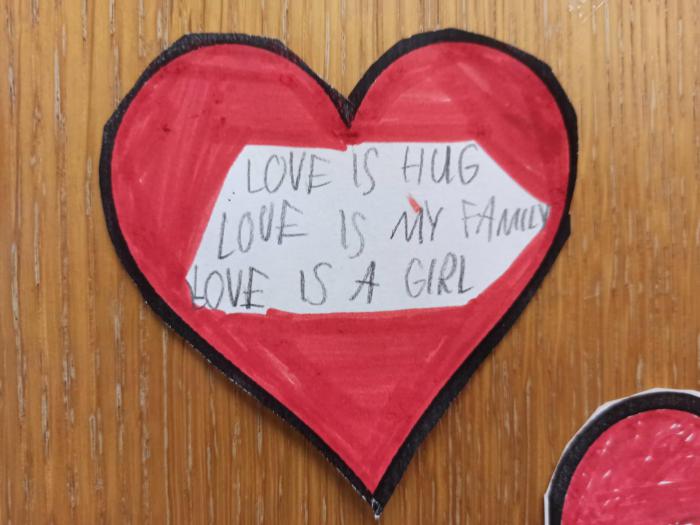 LOVE IS HUG
LOVE IS MY FAMILY
LOVE IS A GIRL